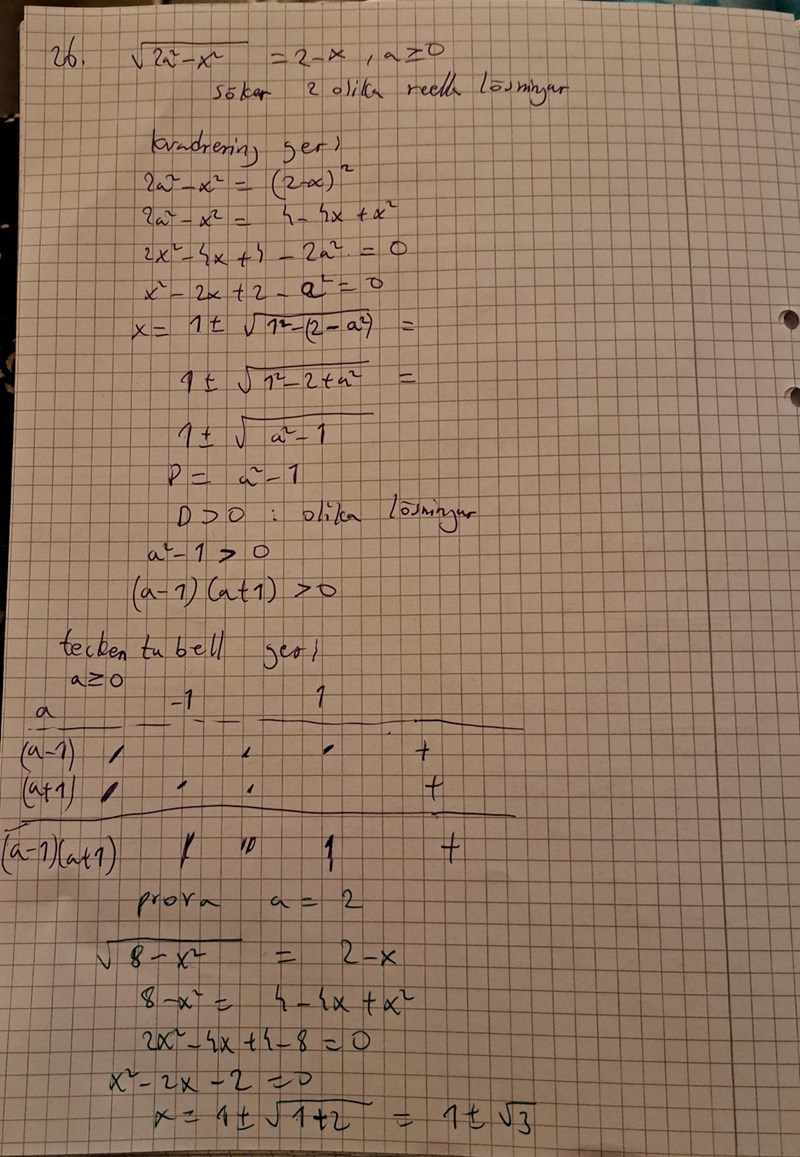 26. √(2a²-x²) = 2-x , a≥0
söker 2 olika reella lösningar
kvadrering ger;
2a²-x² = (2-x)²
2a²-x² = 4-4x+x²
2x²-4x+4-2a² = 0
x²-2x+2-a² = 0
x = 1± √(1²-(2-a²)) =
1± √(1²-2+a²) =
1± √(a²-1)
D = a²-1
D>0 : olika lösningar
a²-1 > 0
(a-1)(a+1) >0
tecken tabell ger;
a≥0
a -1 1
(a-1) +
(a+1) +
(a-1)(a+1) +
prova a = 2
√(8-x²) = 2-x
8-x² = 4-4x+x²
2x²-4x+4-8=0
x²-2x-2=0
x = 1± √(1+2) = 1±√3